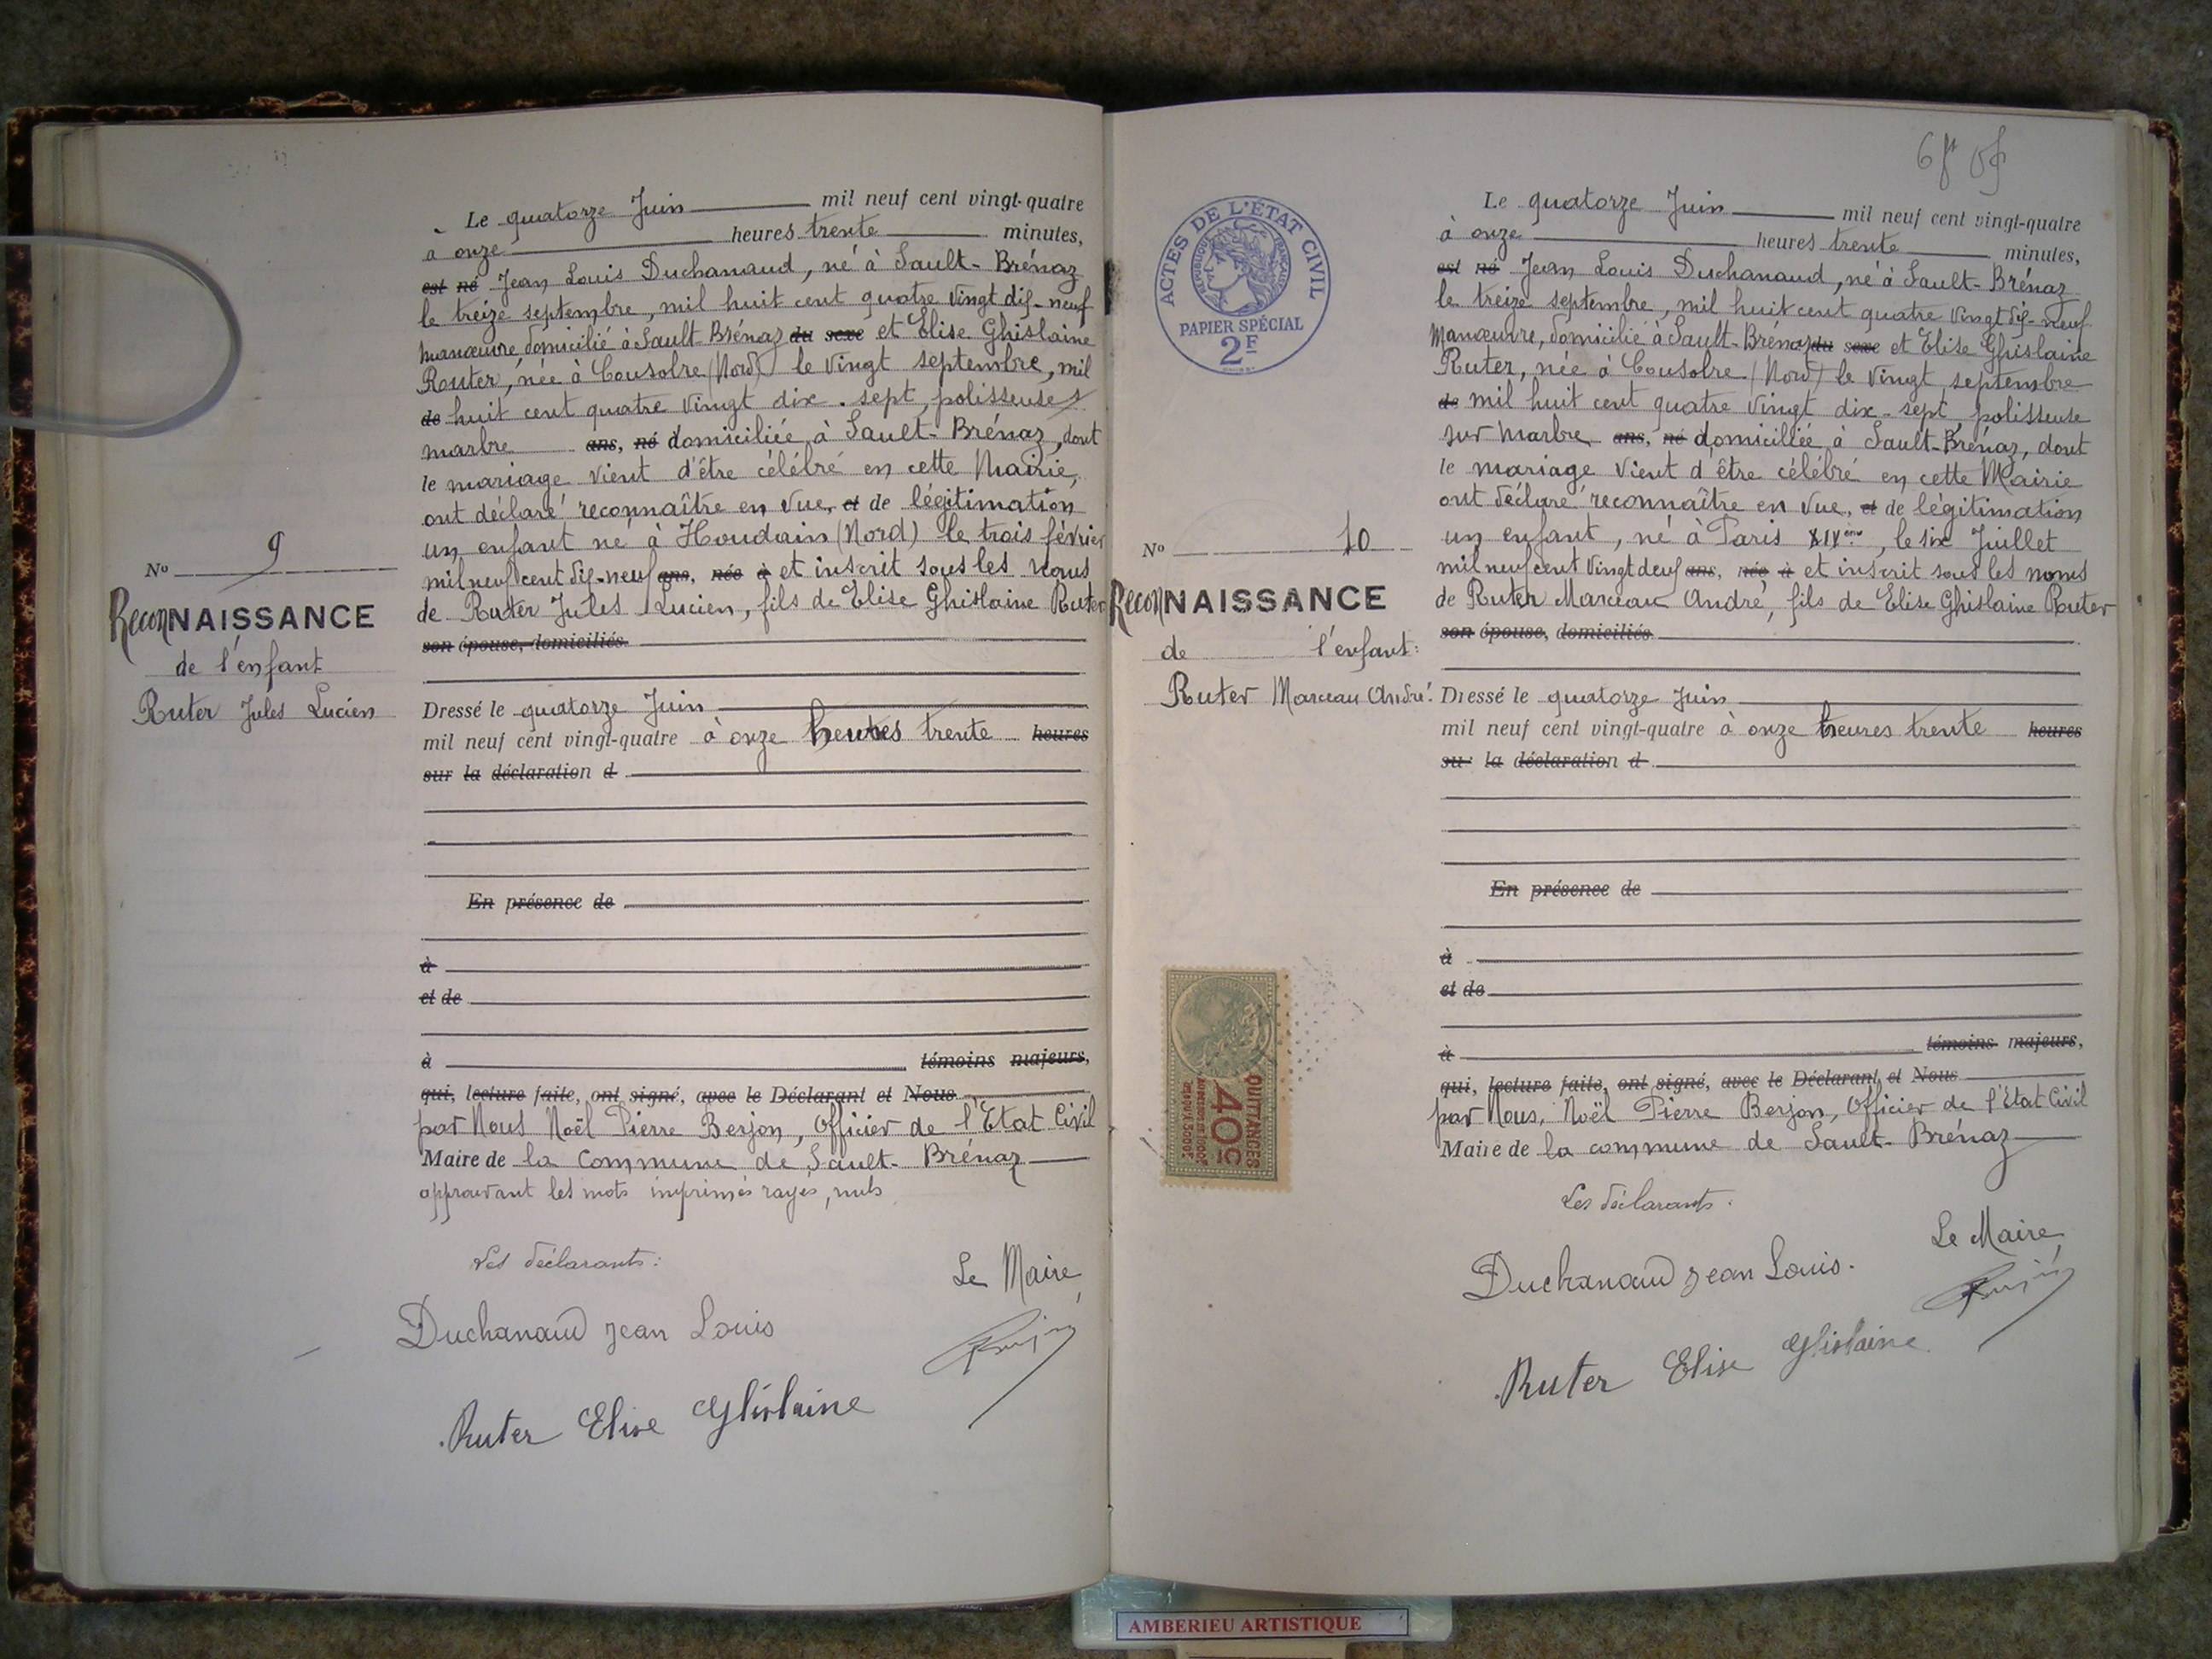 Le quatorze Juin mil neuf cent vingt-quatre
à onze heures trente minutes,
est né Jean Louis Duchanaud, né à Sault-Brénaz
le treize septembre, mil huit cent quatre vingt dix-neuf
manœuvre domicilié à Sault-Brénaz du sexe et Elise Ghislaine
Ruter, née à Cousolre (Nord) le vingt septembre, mil
de huit cent quatre vingt dix-sept, polisseuse s
marbre ans, né domiciliée à Sault-Brénaz, dont
le mariage vient d'être célébré en cette Mairie,
ont déclaré reconnaître en vue, et de légitimation
un enfant né à Houdain (Nord) le trois février
mil neuf cent dix-neuf ans, née à et inscrit sous les noms
de Ruter Jules Lucien, fils de Elise Ghislaine Ruter
son épouse, domiciliés
No 9
ReconNAISSANCE
de l'enfant
Ruter Jules Lucien
Dressé le quatorze Juin
mil neuf cent vingt-quatre à onze heures trente heures
sur la déclaration d
En présence de
à
et de
à témoins majeurs,
qui, lecture faite, ont signé, avec le Déclarant et Nous
par Nous Noël Pierre Berjon, Officier de l'Etat Civil
Maire de la Commune de Sault-Brénaz
approuvant les mots imprimés rayés, nuls
Les déclarants:
Le Maire,
Duchanaud Jean Louis
Ruter Elise Ghislaine
ACTES DE L'ÉTAT CIVIL
RÉPUBLIQUE FRANÇAISE
PAPIER SPÉCIAL
2F
Le quatorze Juin mil neuf cent vingt-quatre
à onze heures trente minutes,
est né Jean Louis Duchanaud, né à Sault-Brénaz
le treize septembre, mil huit cent quatre vingt dix-neuf
Manœuvre, domicilié à Sault-Brénaz du sexe et Elise Ghislaine
Ruter, née à Cousolre (Nord) le vingt septembre
de mil huit cent quatre vingt dix-sept, polisseuse
sur marbre ans, né domicillée à Sault-Brénaz, dont
le mariage vient d'être célébré en cette Mairie
ont déclaré reconnaître en vue, et de légitimation
un enfant, né à Paris XIVème, le six Juillet
mil neuf cent vingt deux ans, née à et inscrit sous les noms
de Ruter Marceau André, fils de Elise Ghislaine Ruter
son épouse, domiciliés
No 10
ReconNAISSANCE
de l'enfant:
Ruter Marceau André.
Dressé le quatorze Juin
mil neuf cent vingt-quatre à onze heures trente heures
sur la déclaration d
En présence de
à
et de
à témoins majeurs,
qui, lecture faite, ont signé, avec le Déclarant et Nous
par Nous, Noël Pierre Berjon, Officier de l'Etat Civil
Maire de la commune de Sault-Brénaz
QUITTANCES
40c
Les déclarants:
Le Maire
Duchanaud Jean Louis.
Ruter Elise Ghislaine
AMBERIEU ARTISTIQUE